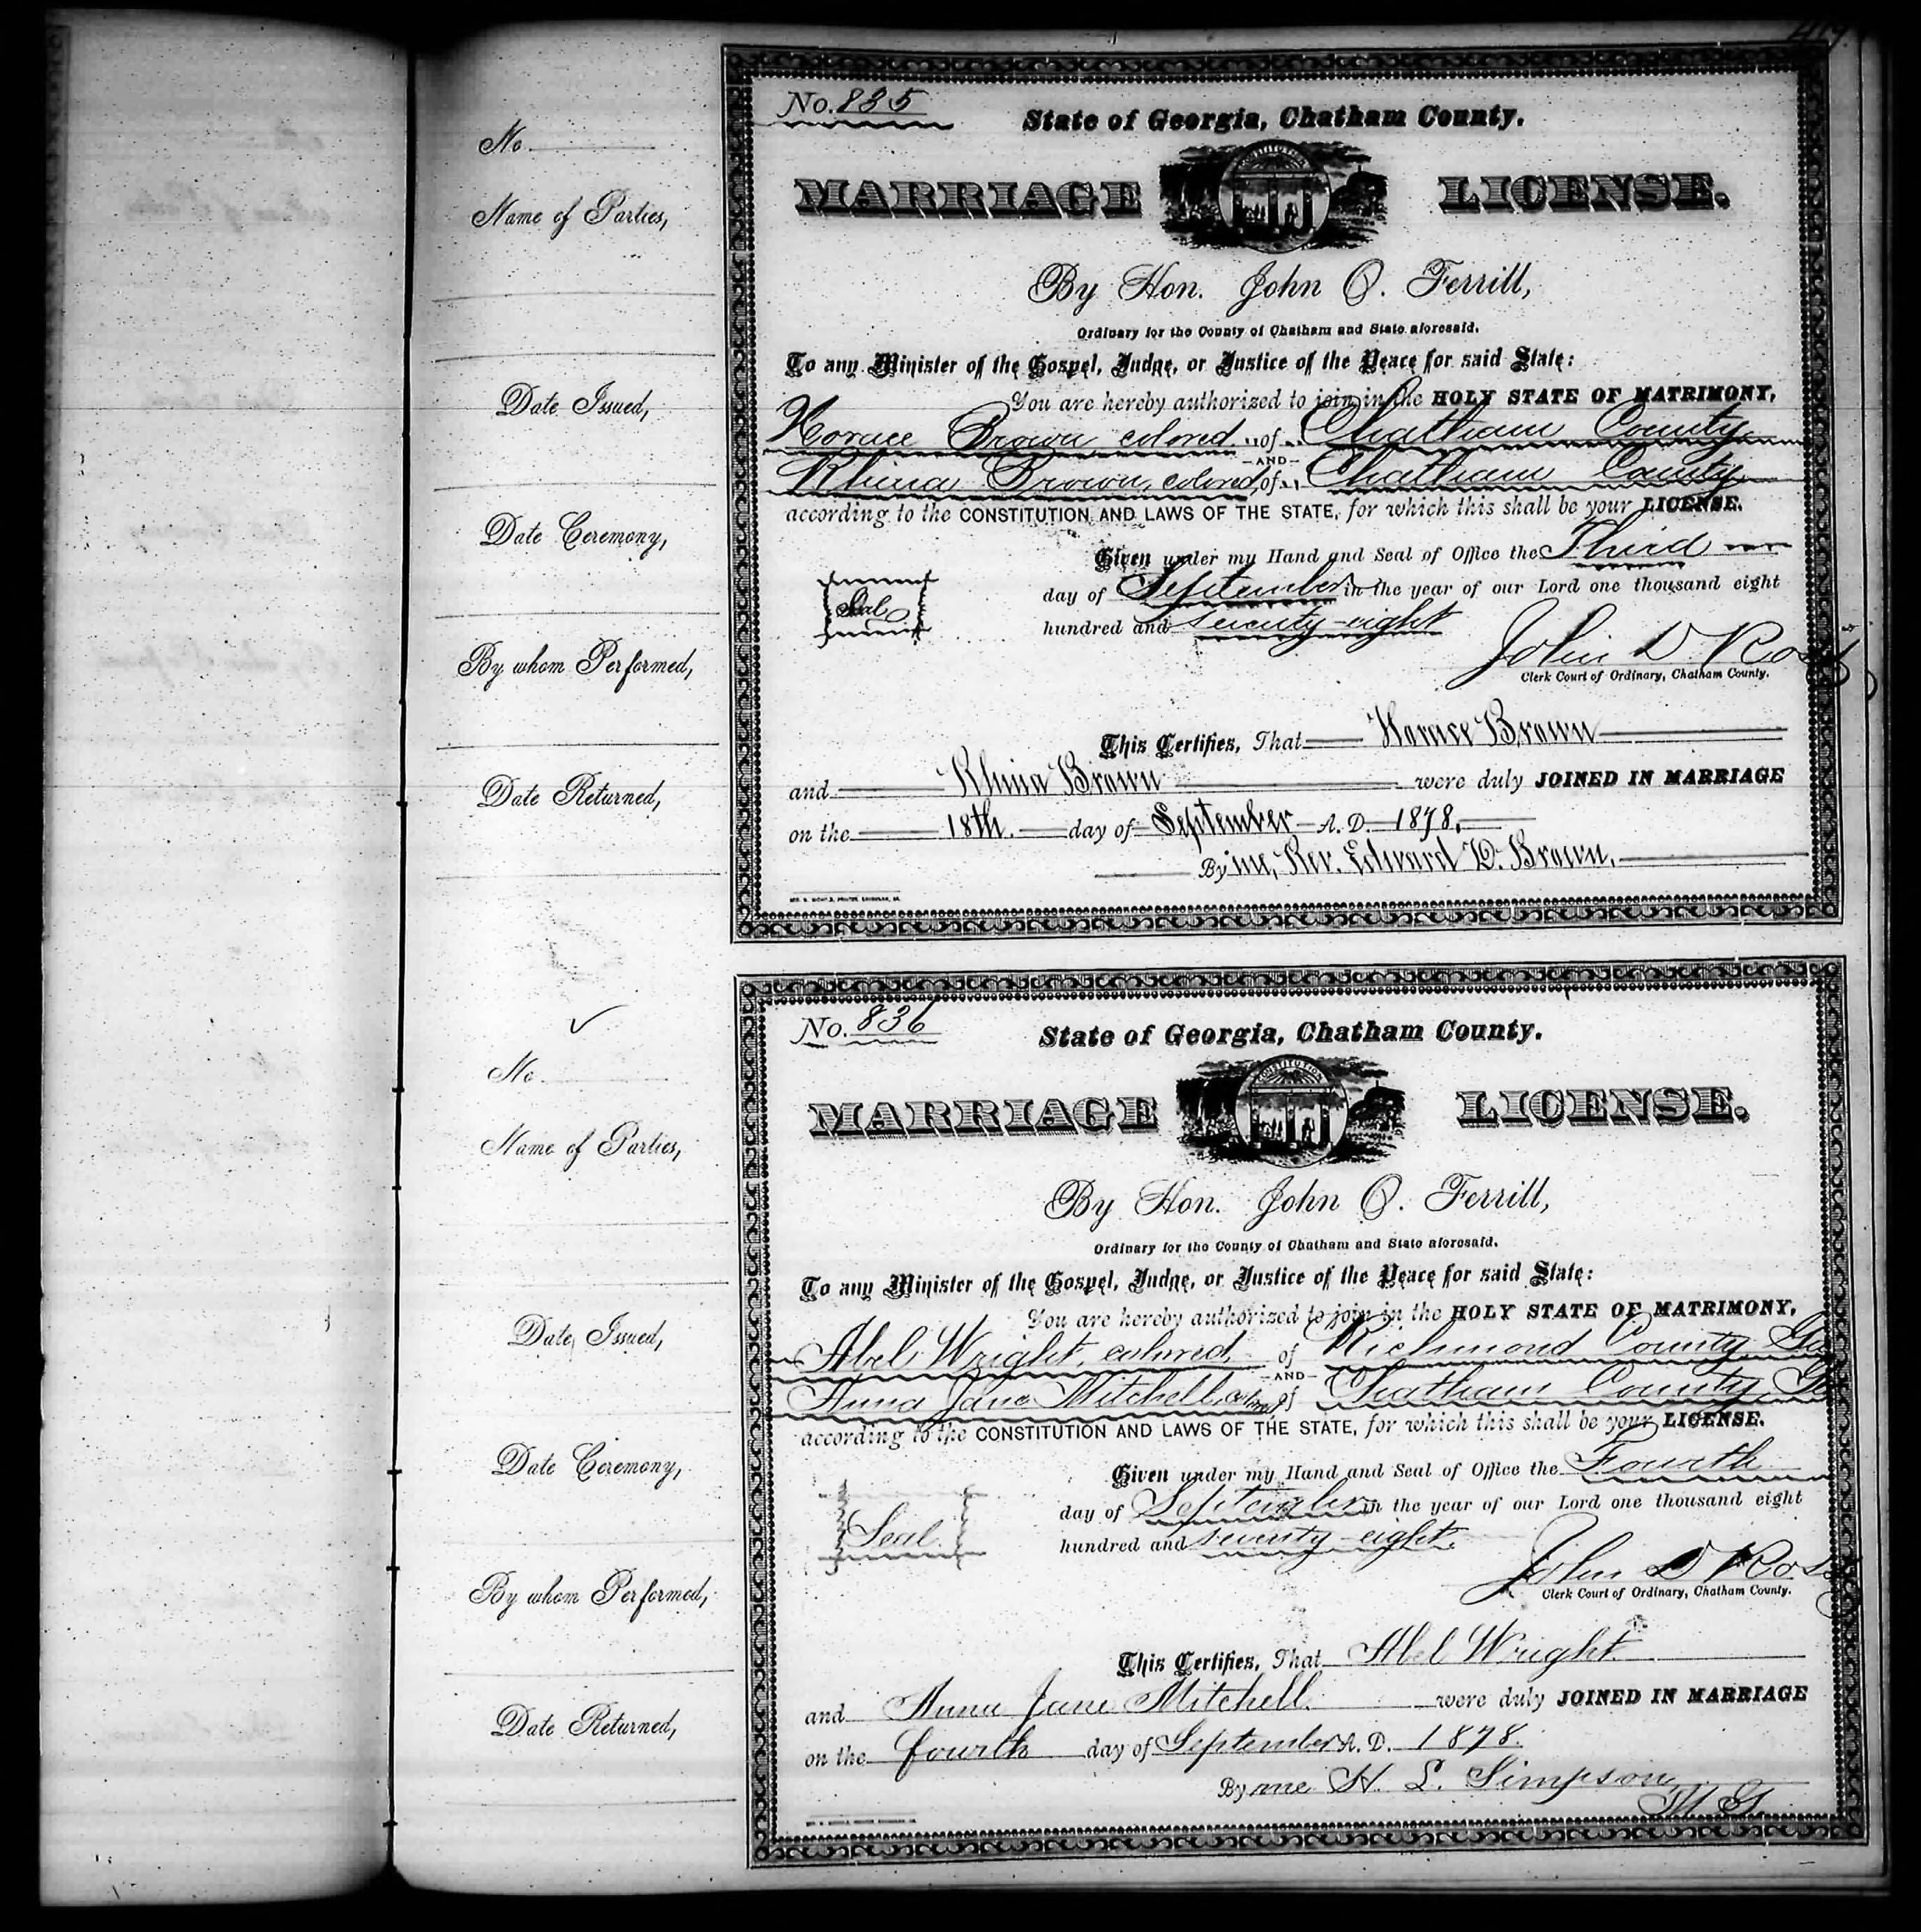 No. 835
State of Georgia, Chatham County.
MARRIAGE LICENSE.
CONSTITUTION
By Hon. John O. Ferrill,
Ordinary for the County of Chatham and State aforesaid.
To any Minister of the Gospel, Judge, or Justice of the Peace for said State:
You are hereby authorized to join in the HOLY STATE OF MATRIMONY,
Horace Brown colored of Chatham County
—AND—
Rhina Brown, colored, of Chatham County
according to the CONSTITUTION AND LAWS OF THE STATE, for which this shall be your LICENSE.
Given under my Hand and Seal of Office the Third
day of September in the year of our Lord one thousand eight
hundred and seventy-eight
Seal
John D Ross
Clerk Court of Ordinary, Chatham County.
This Certifies, That Horace Brown
and Rhina Brown were duly JOINED IN MARRIAGE
on the 18th. day of September A. D. 1878.
By me, Rev. Edward D. Brown,
No
Name of Parties,
Date Issued,
Date Ceremony,
By whom Performed,
Date Returned,
No. 836
State of Georgia, Chatham County.
MARRIAGE LICENSE.
CONSTITUTION
By Hon. John O. Ferrill,
Ordinary for the County of Chatham and State aforesaid.
To any Minister of the Gospel, Judge, or Justice of the Peace for said State:
You are hereby authorized to join in the HOLY STATE OF MATRIMONY,
Abel Wright, colored, of Richmond County Ga
—AND—
Anna Jane Mitchell, colored of Chatham County, Ga
according to the CONSTITUTION AND LAWS OF THE STATE, for which this shall be your LICENSE.
Given under my Hand and Seal of Office the Fourth
day of September in the year of our Lord one thousand eight
hundred and seventy-eight.
Seal.
John D Ross
Clerk Court of Ordinary, Chatham County.
This Certifies, That Abel Wright
and Anna Jane Mitchell. were duly JOINED IN MARRIAGE
on the fourth day of September A. D. 1878.
By me H. L. Simpson
M. G.
No
Name of Parties,
Date Issued,
Date Ceremony,
By whom Performed,
Date Returned,